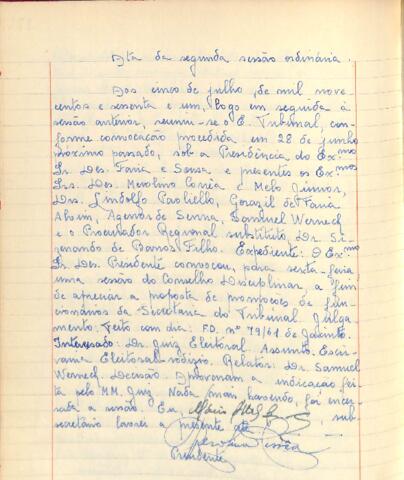 Ata da segunda sessão ordinária.
Aos cinco de julho, de mil nove-
centos e sessenta e um, logo em seguida à
sessão anterior, reuniu-se o E. Tribunal, con-
forme convocação procedida em 28 de junho
próximo passado, sob a Presidência do Exmo
Sr. Des. Faria e Sousa e presentes os Exmos
Srs. Des. Merolino Corrêa e Melo Júnior,
Drs. Lindolfo Paoliello, Gorazil de Faria
Alvim, Agenor de Senna, Samuel Werneck
e o Procurador Regional substituto, Dr. Si-
zenando de Barros Filho. Expediente: O Exmo
Sr. Des. Presidente convocou, para sexta-feira
uma sessão do Conselho Disciplinar, a fim
de apreciar a proposta de promoções de fun-
cionários da Secretaria do Tribunal. Julga-
mento: Feito com dia: F.D. nº 79/61 de Jacinto.
Interessado: Dr. Juiz Eleitoral. Assunto: Escri-
vania Eleitoral-rodízio. Relator: Dr. Samuel
Werneck. Decisão: Aprovaram a indicação fei-
ta pelo MM. Juiz. Nada mais havendo, foi encer-
rada a sessão. Eu, , sub-
secretário lavrei a presente ata
Presidente